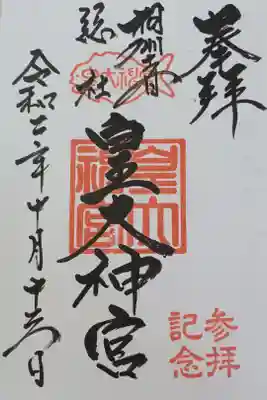 奉拝
相州土甘郷
総社
皇大神宮
皇大神宮
令和二年十月十六日
参拝
記念